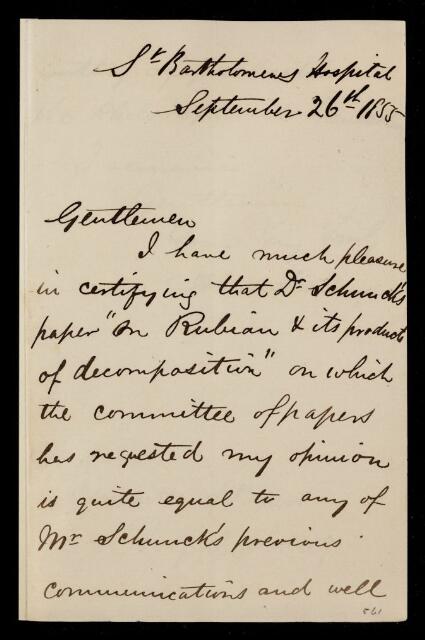 St Bartholomews Hospital
September 26th 1855
Gentlemen
I have much pleasure
in certifying that Dr Schunck's
paper "On Rubian & its products
of decomposition" on which
the committee of papers
has requested my opinion
is quite equal to any of
Mr Schunck's previous
communications and well
561